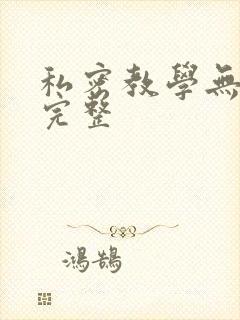 私密教學無
完整
鴻鵠